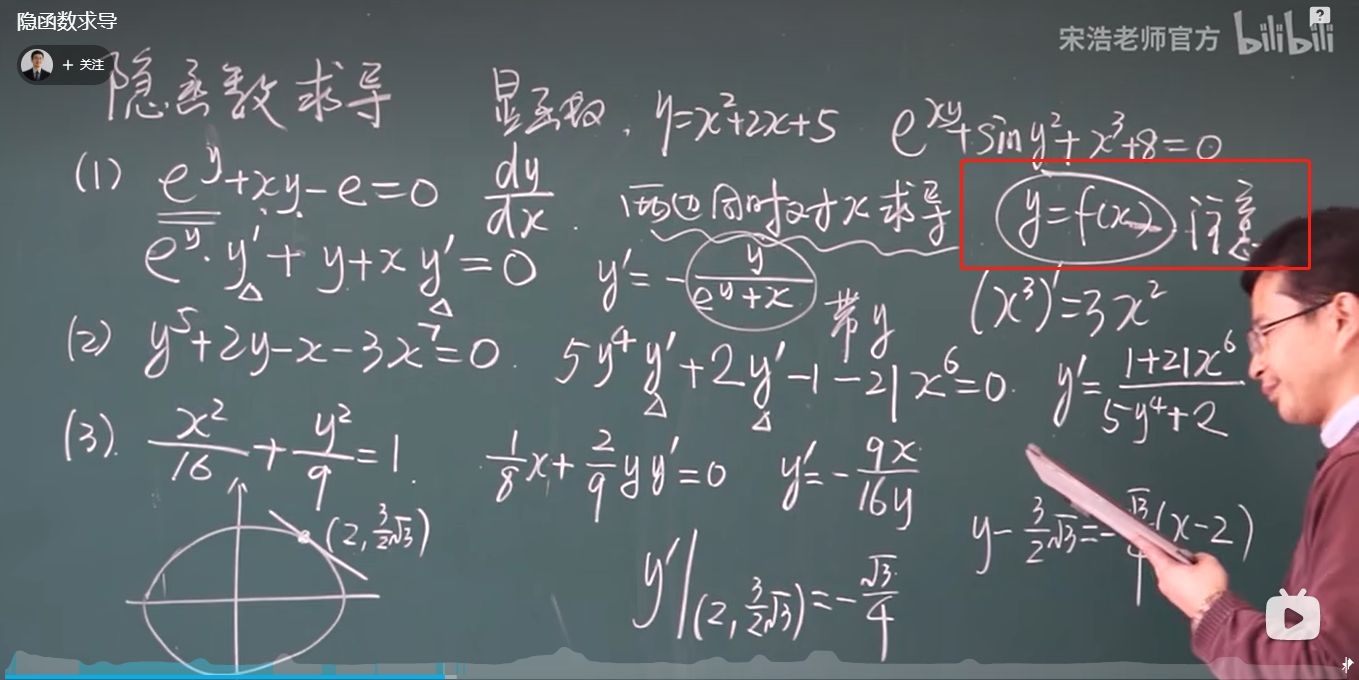 隐函数求导
+ 关注
宋浩老师官方 bilibili
隐函数求导 显函数, y=x²+2x+5 e^{xy}+sin y²+x³+8=0
(1) e^y+xy-e=0 dy/dx. 两边同时对x求导 y=f(x). 注意
e^y·y'+y+xy'=0 y'=-y/(e^y+x) 带y (x³)'=3x²
(2) y⁵+2y-x-3x⁷=0. 5y⁴y'+2y'-1-21x⁶=0. y'=(1+21x⁶)/(5y⁴+2)
(3). x²/16+y²/9=1. 1/8x+2/9yy'=0 y'=-9x/16y
(2, 3/2√3) y'|(2, 3/2√3)=-√3/4 y-3/2√3=-√3/4(x-2)